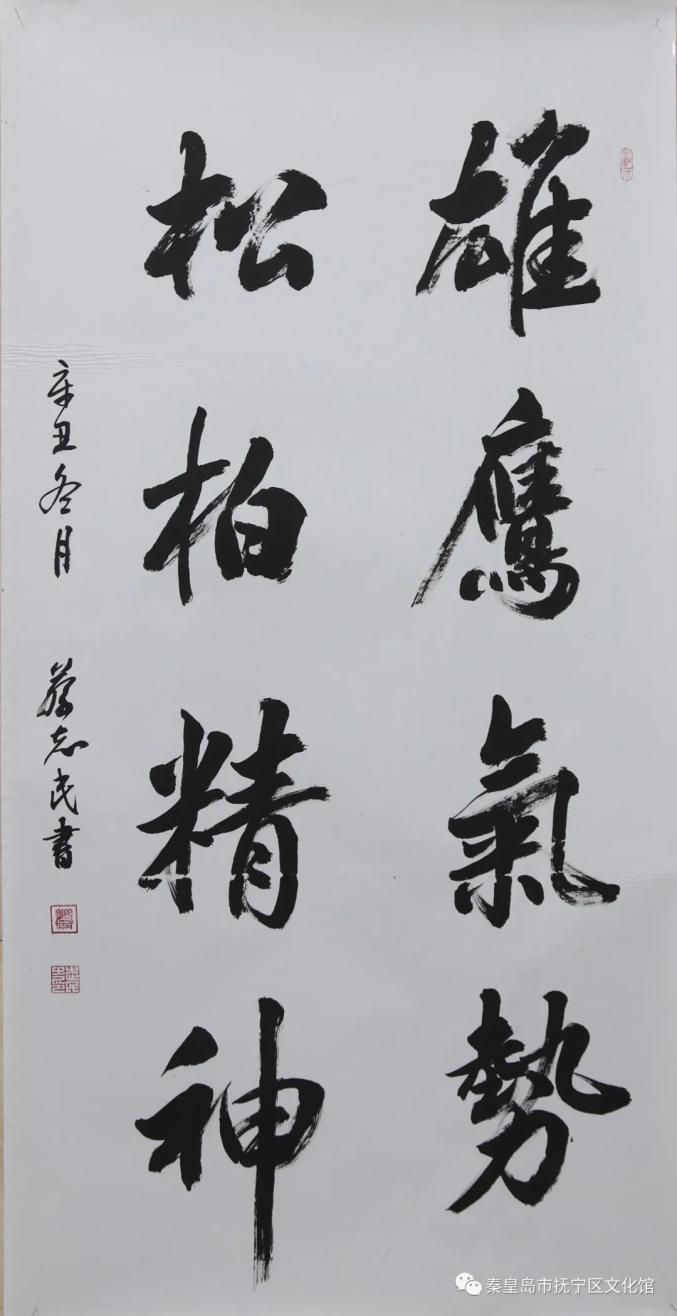 雄鷹氣勢
松柏精神
辛丑冬月 蔡志民書
秦皇岛市抚宁区文化馆